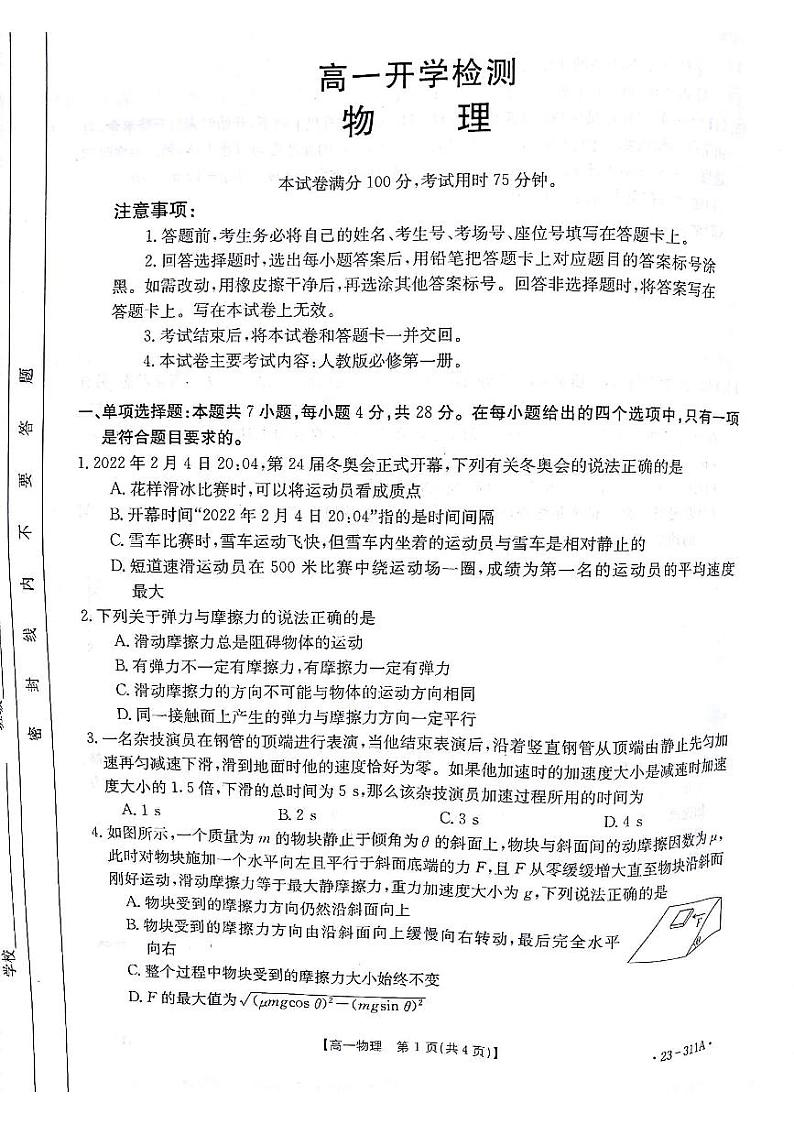 高一开学检测
物 理
本试卷满分100分,考试用时75分钟。
注意事项:
1.答题前,考生务必将自己的姓名、考生号、考场号、座位号填写在答题卡上。
2.回答选择题时,选出每小题答案后,用铅笔把答题卡上对应题目的答案标号涂
黑。如需改动,用橡皮擦干净后,再选涂其他答案标号。回答非选择题时,将答案写在
答题卡上。写在本试卷上无效。
3.考试结束后,将本试卷和答题卡一并交回。
4.本试卷主要考试内容:人教版必修第一册。
一、单项选择题:本题共7小题,每小题4分,共28分。在每小题给出的四个选项中,只有一项
是符合题目要求的。
1.2022年2月4日20:04,第24届冬奥会正式开幕,下列有关冬奥会的说法正确的是
A.花样滑冰比赛时,可以将运动员看成质点
B.开幕时间“2022年2月4日20:04”指的是时间间隔
C.雪车比赛时,雪车运动飞快,但雪车内坐着的运动员与雪车是相对静止的
D.短道速滑运动员在500米比赛中绕运动场一圈,成绩为第一名的运动员的平均速度
最大
2.下列关于弹力与摩擦力的说法正确的是
A.滑动摩擦力总是阻碍物体的运动
B.有弹力不一定有摩擦力,有摩擦力一定有弹力
C.滑动摩擦力的方向不可能与物体的运动方向相同
D.同一接触面上产生的弹力与摩擦力方向一定平行
3.一名杂技演员在钢管的顶端进行表演,当他结束表演后,沿着竖直钢管从顶端由静止先匀加
速再匀减速下滑,滑到地面时他的速度恰好为零。如果他加速时的加速度大小是减速时加速
度大小的1.5倍,下滑的总时间为5 s,那么该杂技演员加速过程所用的时间为
A.1 s B.2 s C.3 s D.4 s
4.如图所示,一个质量为m的物块静止于倾角为θ的斜面上,物块与斜面间的动摩擦因数为μ,
此时对物块施加一个水平向左且平行于斜面底端的力F,且F从零缓缓增大直至物块沿斜面
刚好运动,滑动摩擦力等于最大静摩擦力,重力加速度大小为g,下列说法正确的是
A.物块受到的摩擦力方向仍然沿斜面向上
B.物块受到的摩擦力方向由沿斜面向上缓慢向右转动,最后完全水平
向右
C.整个过程中物块受到的摩擦力大小始终不变
D.F的最大值为√(μmgcos θ)²-(mgsin θ)²
F
θ
【高一物理 第1页(共4页)】
·23-311A·
密 封 线 内 不 要 答 题
学校